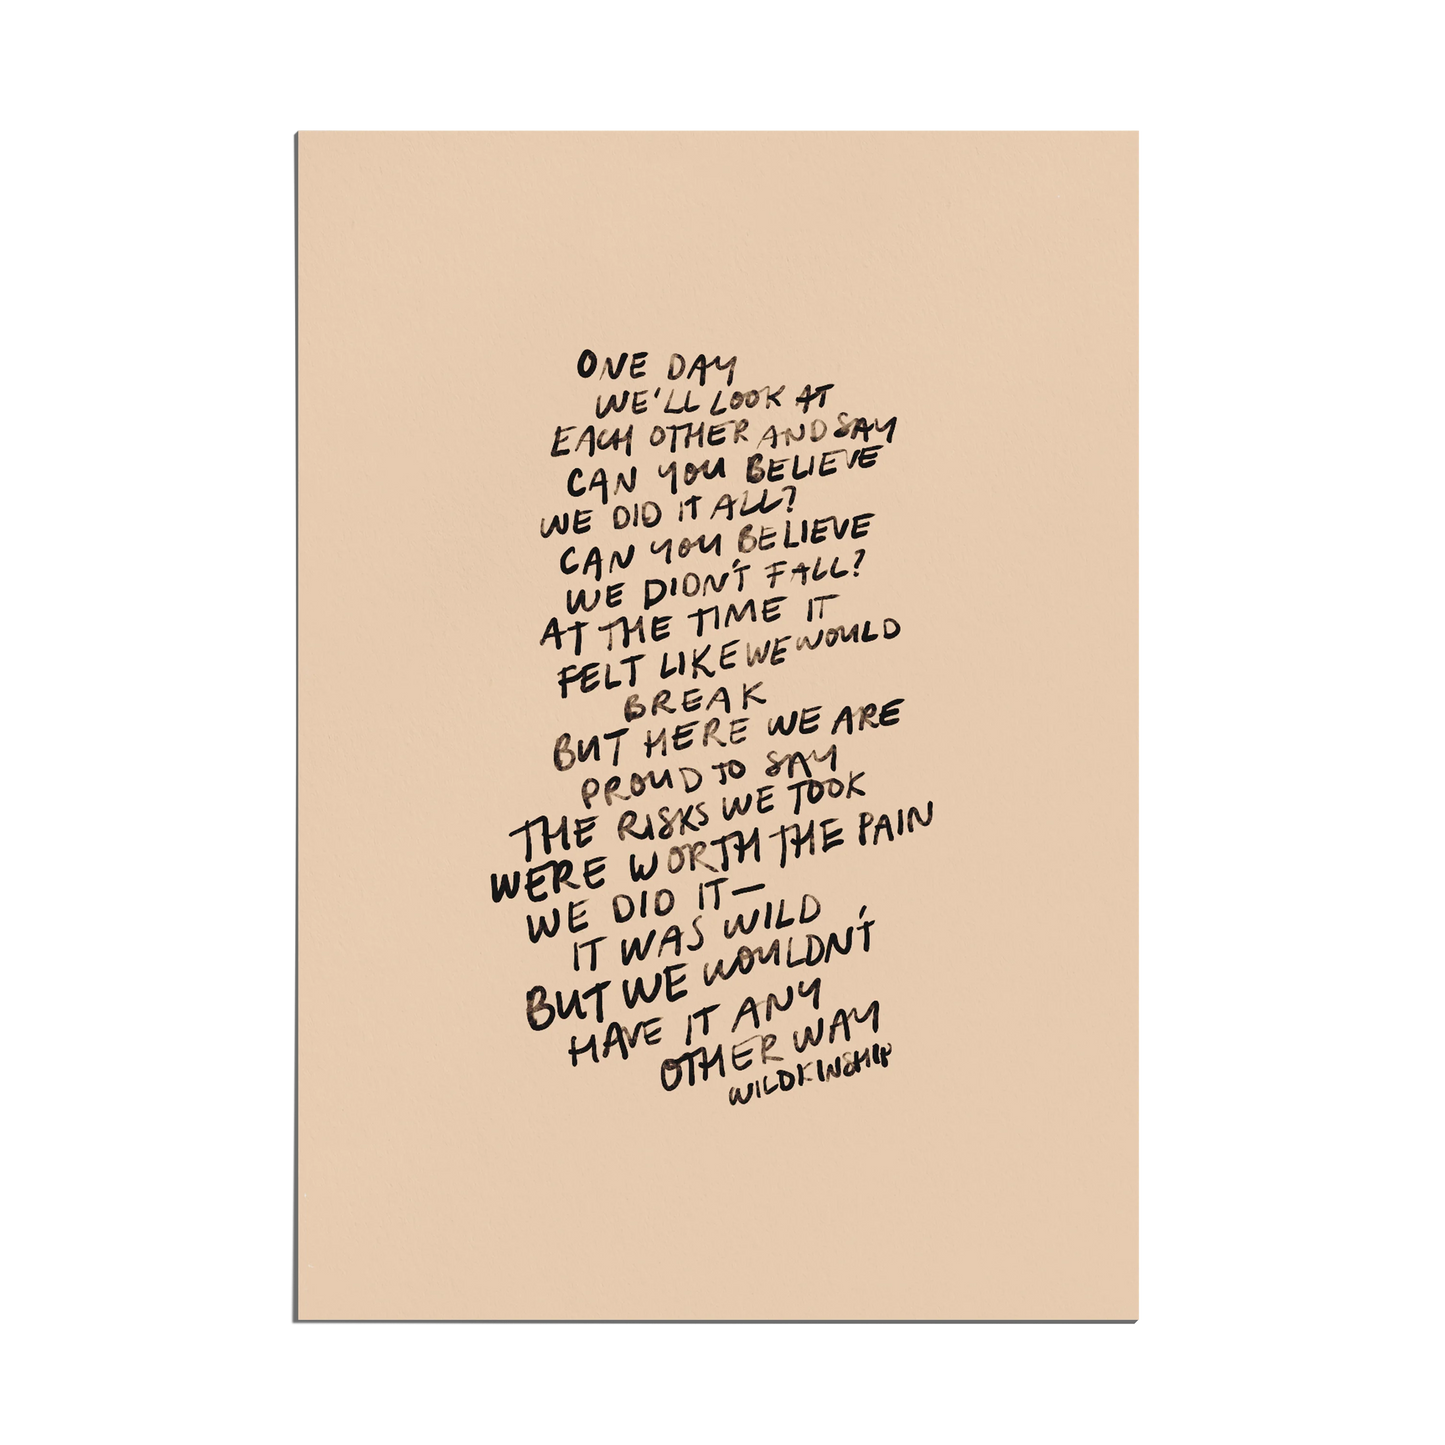 ONE DAY
WE'LL LOOK AT
EACH OTHER AND SAY
CAN YOU BELIEVE
WE DID IT ALL?
CAN YOU BELIEVE
WE DIDN'T FALL?
AT THE TIME IT
FELT LIKE WE WOULD
BREAK
BUT HERE WE ARE
PROUD TO SAY
THE RISKS WE TOOK
WERE WORTH THE PAIN
WE DID IT—
IT WAS WILD
BUT WE WOULDN'T
HAVE IT ANY
OTHER WAY
WILDKINSHIP